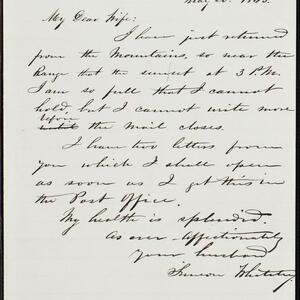 May 20. 1865.
My Dear Wife:
I have just returned
from the Mountains, so near the
Range that the sunset at 3 P.M.
I am so full that I cannot
hold, but I cannot write more
before
the mail closes.
I have two letters from
you which I shall open
as soon as I get this in
the Post Office.
My health is splendid.
As ever - Affectionately
your husband
Simeon Whiteley